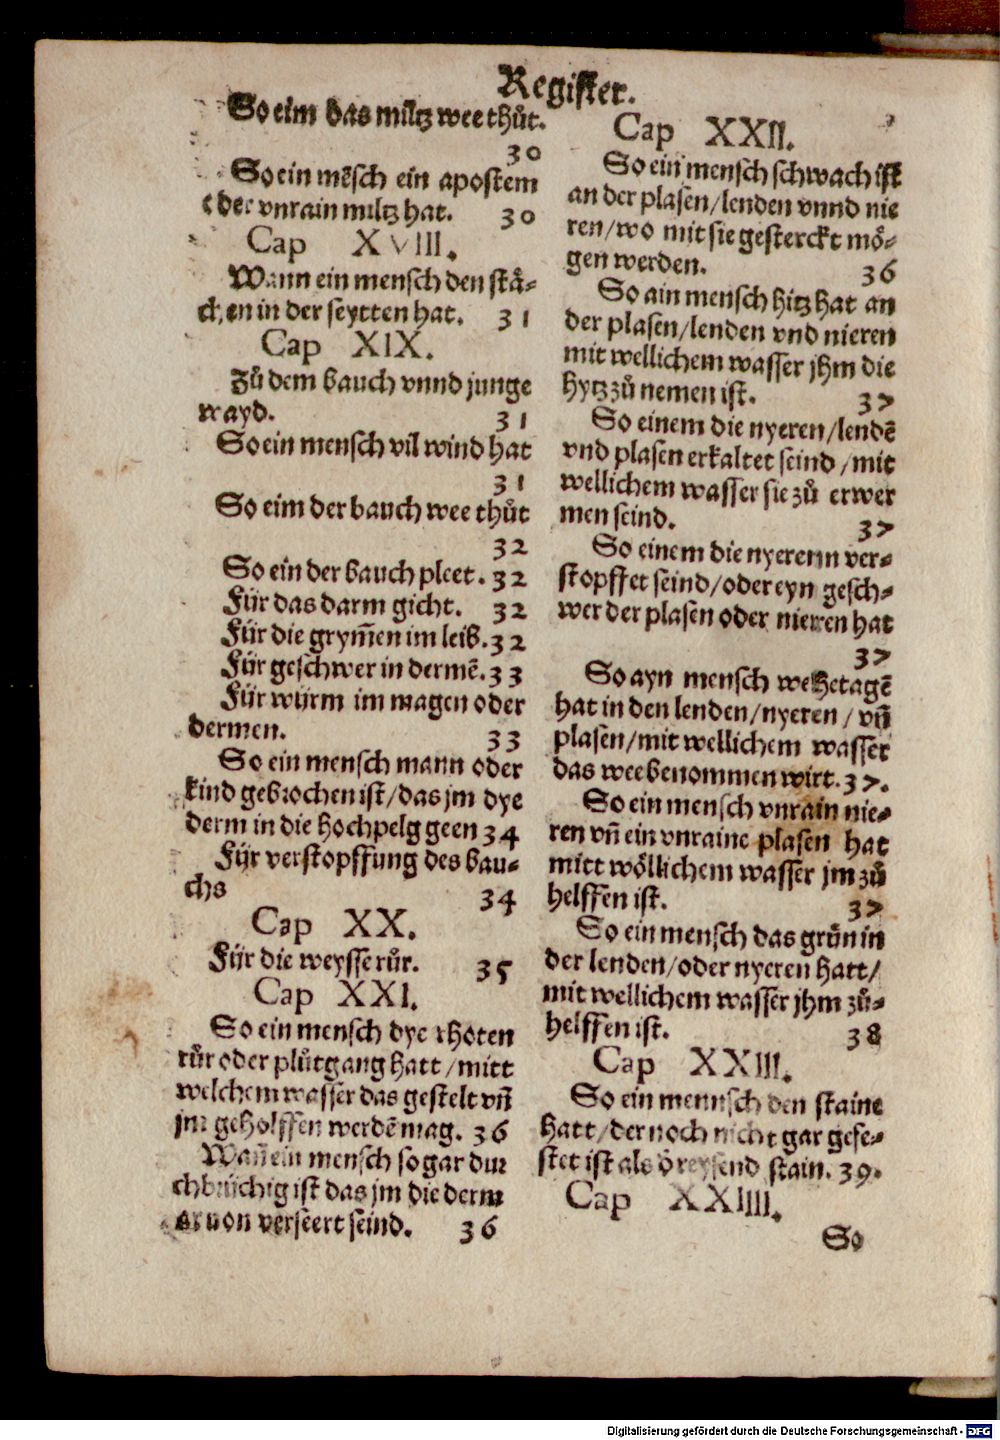 Register.
So eim das miltz wee thůt.
30
So ein mēsch ein apostem
oder vnrain miltz hat. 30
Cap XVIII.
Wann ein mensch den stå-
chen in der seytten hat. 31
Cap XIX.
Zů dem bauch vnnd junge
wayd. 31
So ein mensch vil wind hat
31
So eim der bauch wee thůt
32
So ein der bauch pleet. 32
Für das darm gicht. 32
Für die grym̄en im leib. 32
Für geschwer in dermē. 33
Für würm im magen oder
dermen. 33
So ein mensch mann oder
kind gebrochen ist/das jm dye
derm in die hochpelg geen 34
Für verstopffung des bau-
chs 34
Cap XX.
Für die weysse růr. 35
Cap XXI.
So ein mensch dye rhoten
růr oder plůtgang hatt/mitt
welchem wasser das gestelt vn̄
jm geholffen werdē mag. 36
Wan̄ ein mensch so gar dur
chbrüchig ist das jm die derm
aruon verseert seind. 36
Cap XXII.
So ein mensch schwach ist
an der plasen/lenden vnnd nie
ren/wo mit sie gesterckt mö-
gen werden. 36
So ain mensch hitz hat an
der plasen/lenden vnd nieren
mit wellichem wasser jhm die
hytz zů nemen ist. 37
So einem die nyeren/lendē
vnd plasen erkaltet seind/mit
wellichem wasser sie zů erwer
men seind. 37
So einem die nyerenn ver-
stopffet seind/oder eyn gesch-
wer der plasen oder nieren hat
37
So ayn mensch wehetagē
hat in den lenden/nyeren/vn̄
plasen/mit wellichem wasser
das wee benommen wirt. 37.
So ein mensch vnrain nie-
ren vn̄ ein vnraine plasen hat
mitt wöllichem wasser jm zů
helffen ist. 37
So ein mensch das grün in
der lenden/oder nyeren hatt/
mit wellichem wasser jhm zů-
helffen ist. 38
Cap XXIII.
So ein mennsch den staine
hatt/der noch nicht gar gese-
stet ist als ð reysend stain. 39.
Cap XXIIII.
So
Digitalisierung gefördert durch die Deutsche Forschungsgemeinschaft - DFG